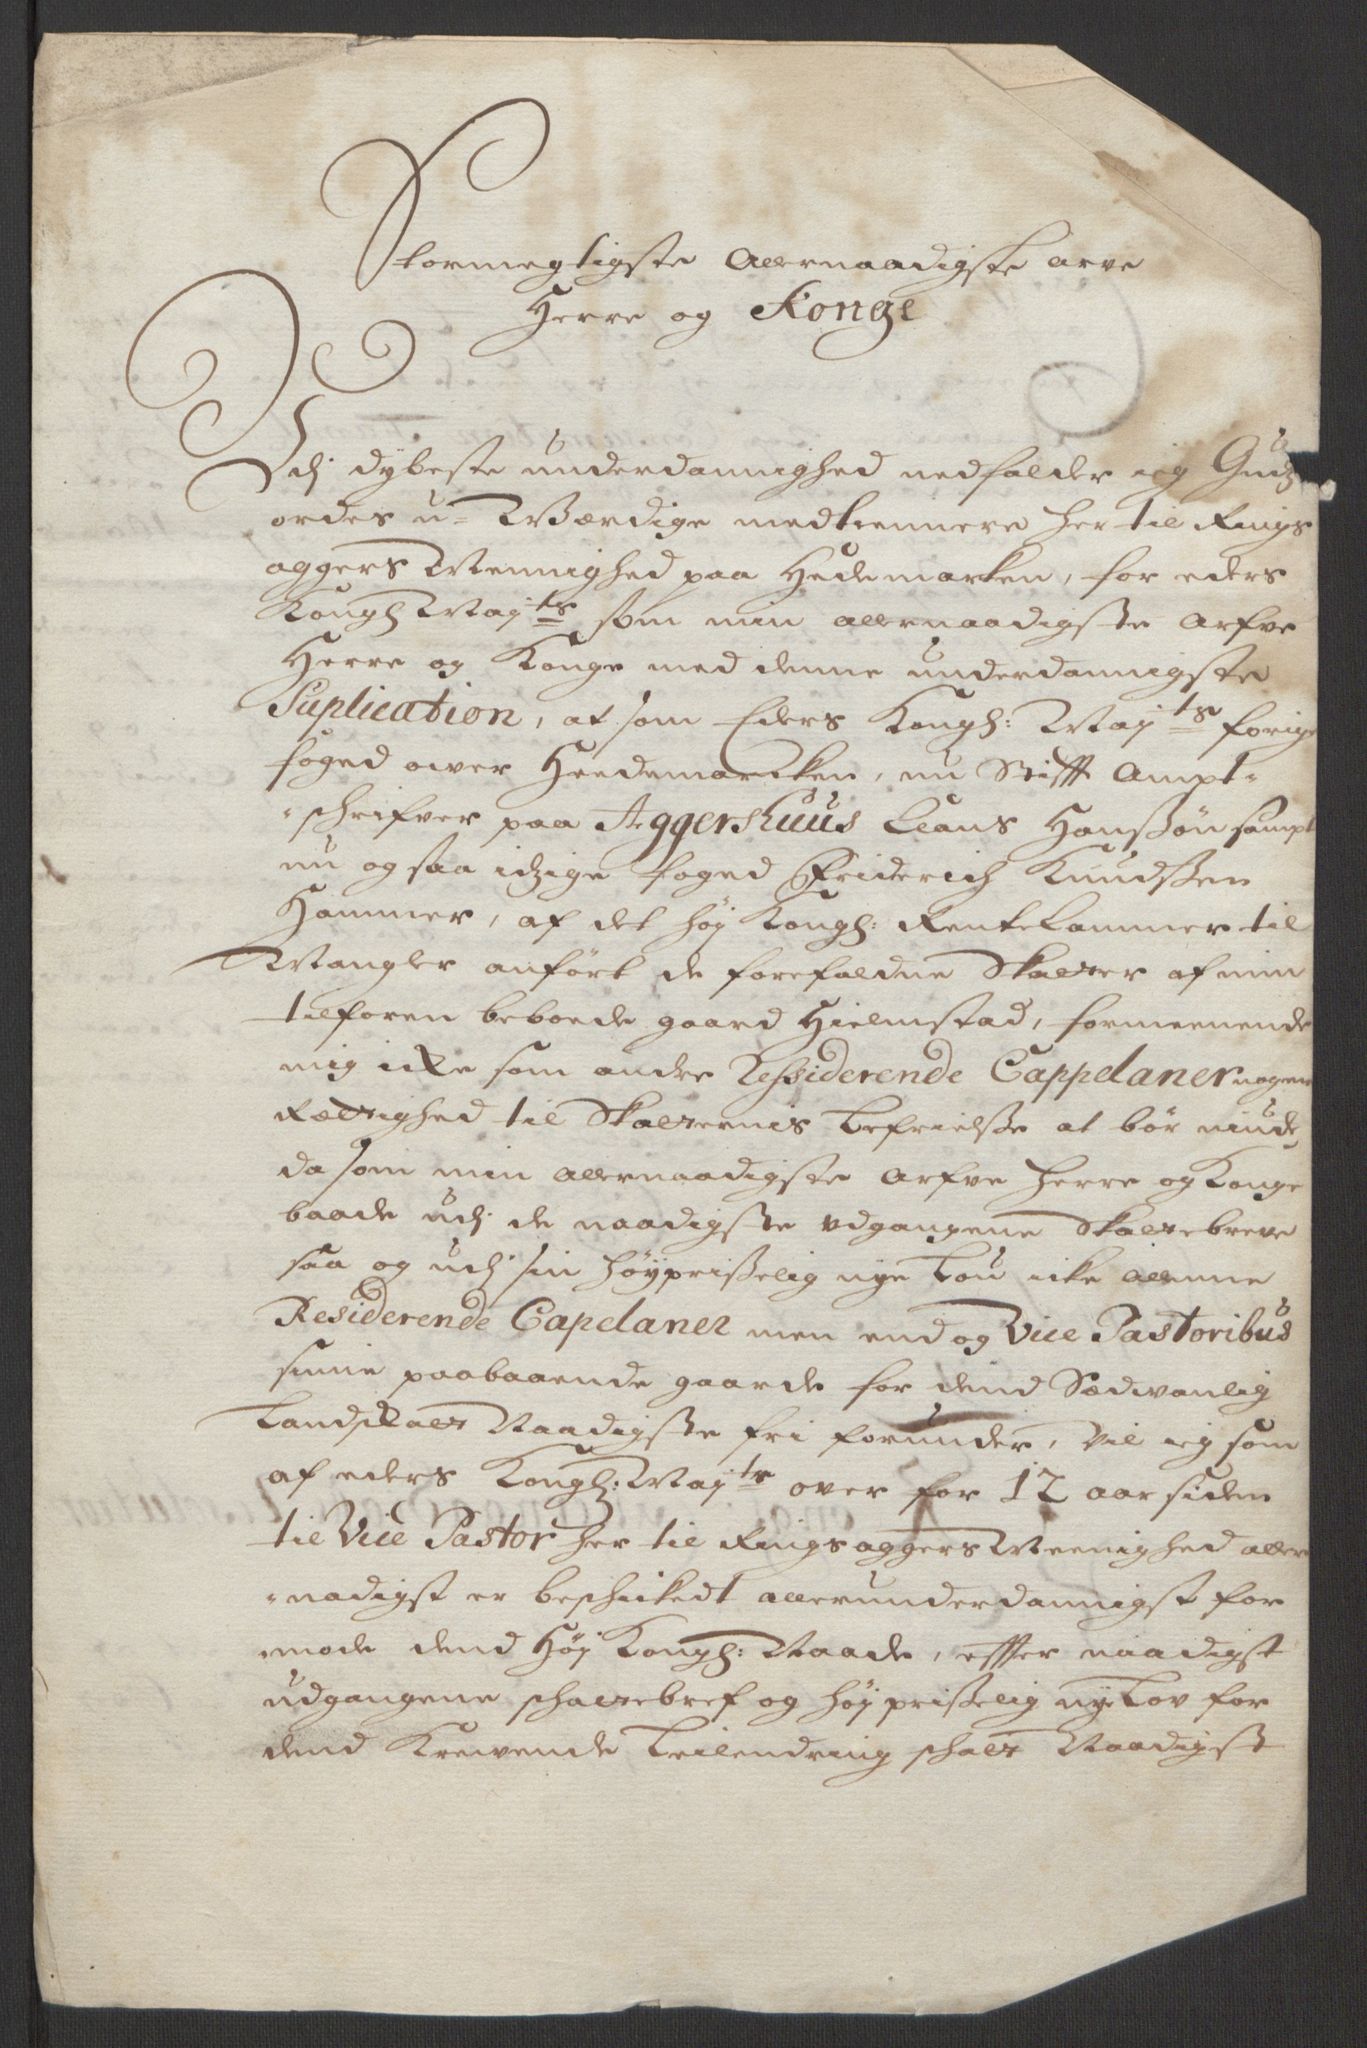 Stormegtigste Allernaadigste arve
Herre og Konge
Udj dybeste underdannighed nedfalder ieg Gudz
ordes u-Wærdige medtiennere her til Rings
aggers Mennighed paa Hedemarken, for eders
Kongl Mayts som min allernaadigste Arfve
Herre og Konge med denne underdannigste
Suplication, at som Eders Kongl: Mayts forige
foged over Heedemarcken, nu Stifft Ampt-
-schrifver paa Aggershuus Claus Hanssøn sampt
nu og saa itzige foged Friderich Knudssen
Hammer, af det høj Kongl: Rentekammer til
Mangler anført de forefaldne Skatter af min
tilforen beboede gaard Hielmstad, formeenende
mig icke som andre Ressiderende Cappelaner nogen
Rættighed til Skatternis befrielsse at bør niude,
da som min allernaadigste Arfve Herre og Konge
baade udj de naadigste udgangene Skattebreve
saa og udj sin høyprisselig nye Lou icke allene
Residerende Capelaner men end og Vice Pastoribus
sinne paaboende gaarde for dend Sædvanlig
Landskatt Naadigste fri forunder, Vil ieg som
af eders Kongl: Mayts over for 12 aar siden
til Vice Pastor her til Ringsaggers Meenighed aller
-nadigst er beschicket allerunderdannigst for
mode dend Høj Kongl: Naade, effter naadigst
udgangene schattebref og høj prisselig nye Lov for
dend Krevende Leilendring schatt Naadigst